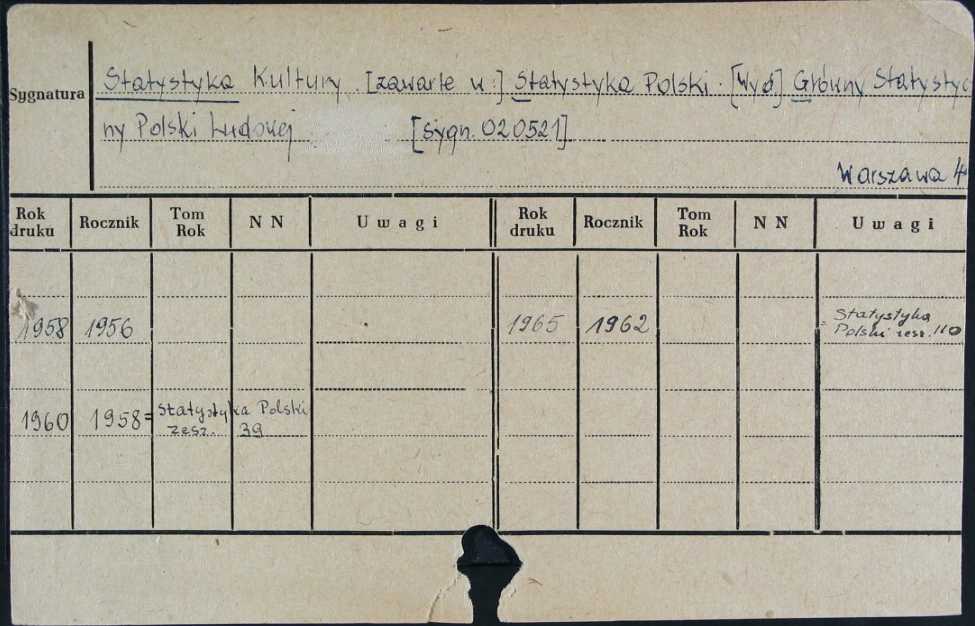 Sygnatura
Statystyka Kultury. [zawarte w:] Statystyka Polski. [Wyd.] Główny Statystycz
ny Polski Ludowej [sygn. 020521]
Warszawa 4°
Rok druku Rocznik Tom Rok NN Uwagi Rok druku Rocznik Tom Rok NN Uwagi
1958 1956 1965 1962 = Statystyka
Polski zesz. 110
1960 1958 = Statystyka Polski
zesz. 39